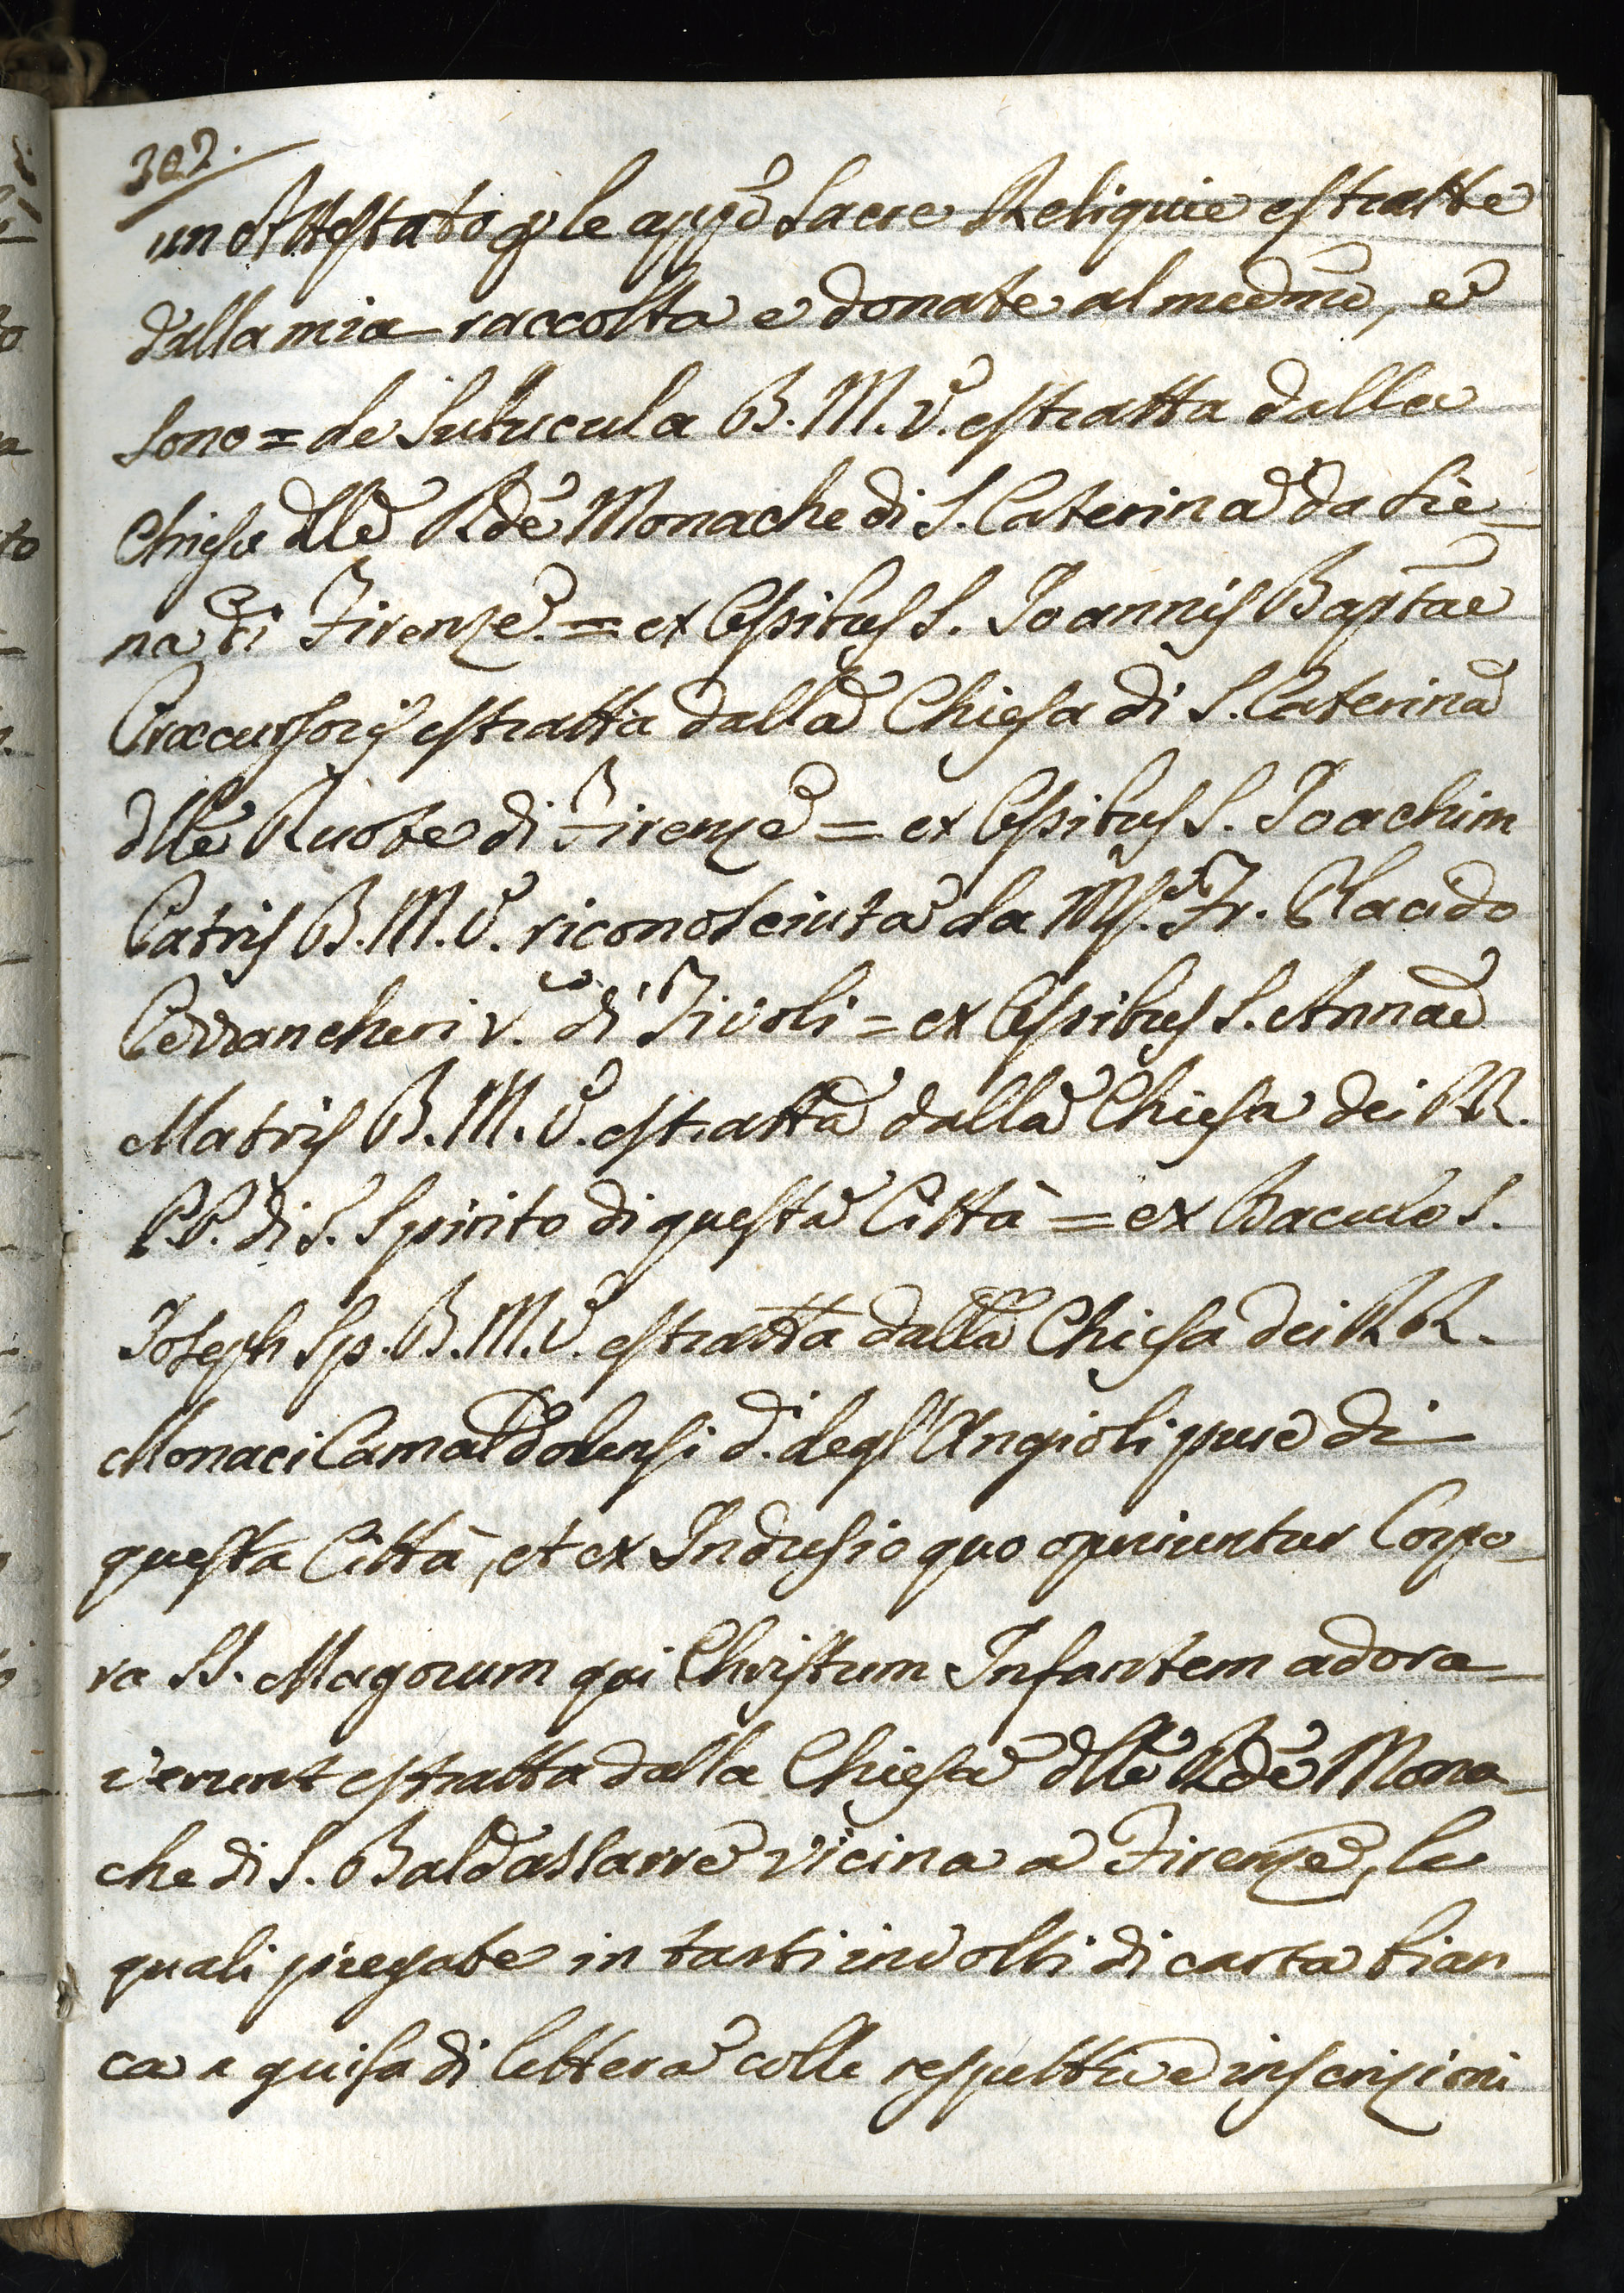 302.
un Attestato p le app.e Sacre Reliquie estratte
dalla mia raccolta e donate al medmo, e
sono = de Subucula B. M. V. estratta dalla
Chiesa dlle Rde Monache di S. Caterina da Sie-
na di Firenze = ex Ossibus S. Joannis Baptae
Praecursoris estratta dalla Chiesa di S. Caterina
dlle Ruote di Firenze = ex Ossibus S. Joachim
Patris B. M. V. riconosciuta da Mgr. Fr. Placido
Pezzancheri v.vo di Tivoli = ex Ossibus S. Annae
Matris B. M. V. estratta dalla Chiesa dei RR.
PP. di S. Spirito di questa Città = ex Baculo S.
Joseph Sp. B. M. V. estratta dalla Chiesa dei RR.
Monaci Camaldolensi d. degl'Angioli pure di
questa Città, et ex Indusio quo operiuntur Corpo-
ra SS. Magorum qui Christum Infantem adora-
verunt estratta dalla Chiesa dlle Rde Mona-
che di S. Baldassarre vicina a Firenze, le
quali piegate in tanti involti di carta bian-
ca a guisa di lettera colle respettive inscrizioni